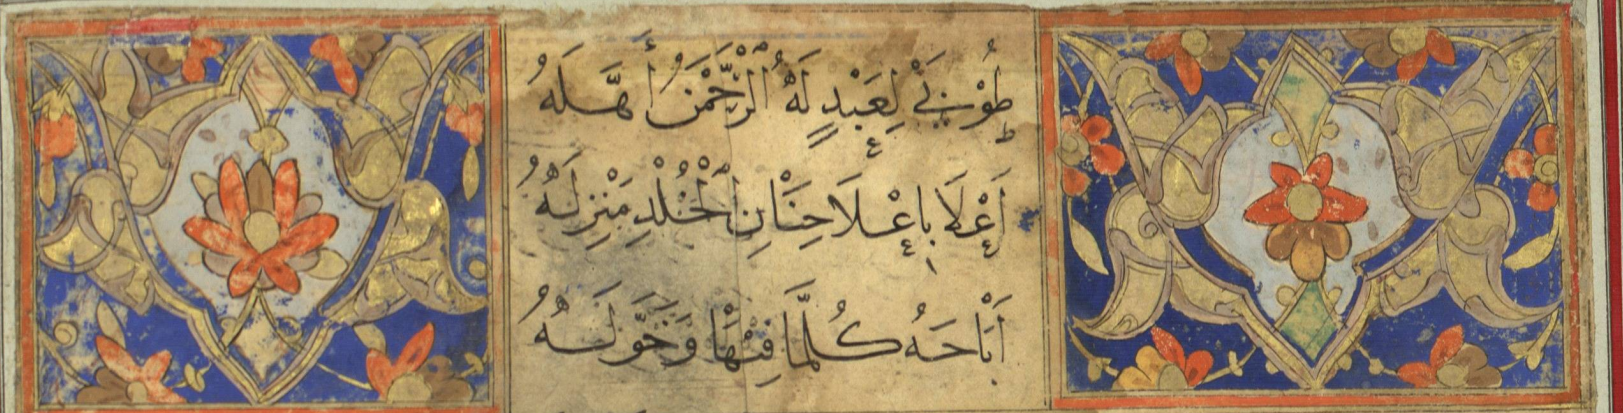 طُوْبٰى لِعَبْدٍ لَهُ الرَّحْمٰنُ أَهَّلَهُ
أَعْلَا بِإِعْلَا جِنَانِ الْخُلْدِ مَنْزِلَهُ
أَبَاحَهُ كُلَّمَا فِيْهَا وَخَوَّلَهُ